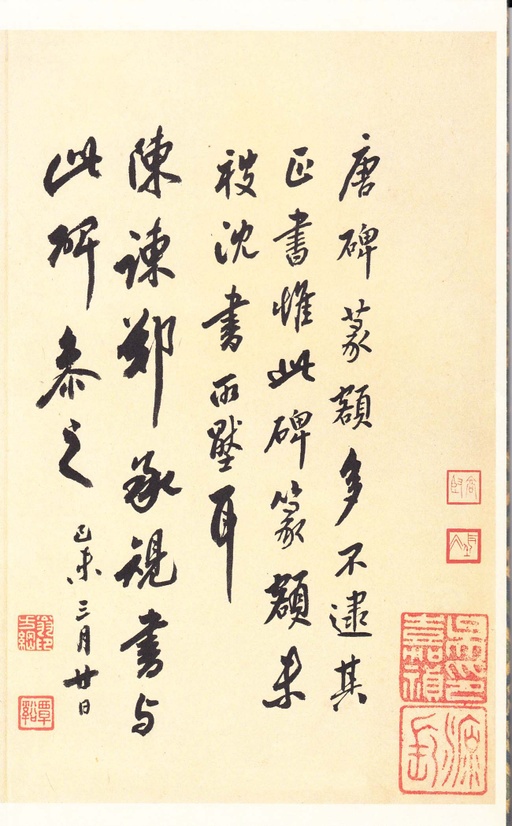 唐碑篆額多不逮其
正書惟此碑篆額未
被沈書所壓耳
陳諫鄭承規書與
此碑叅之
己未三月廿日
覃谿